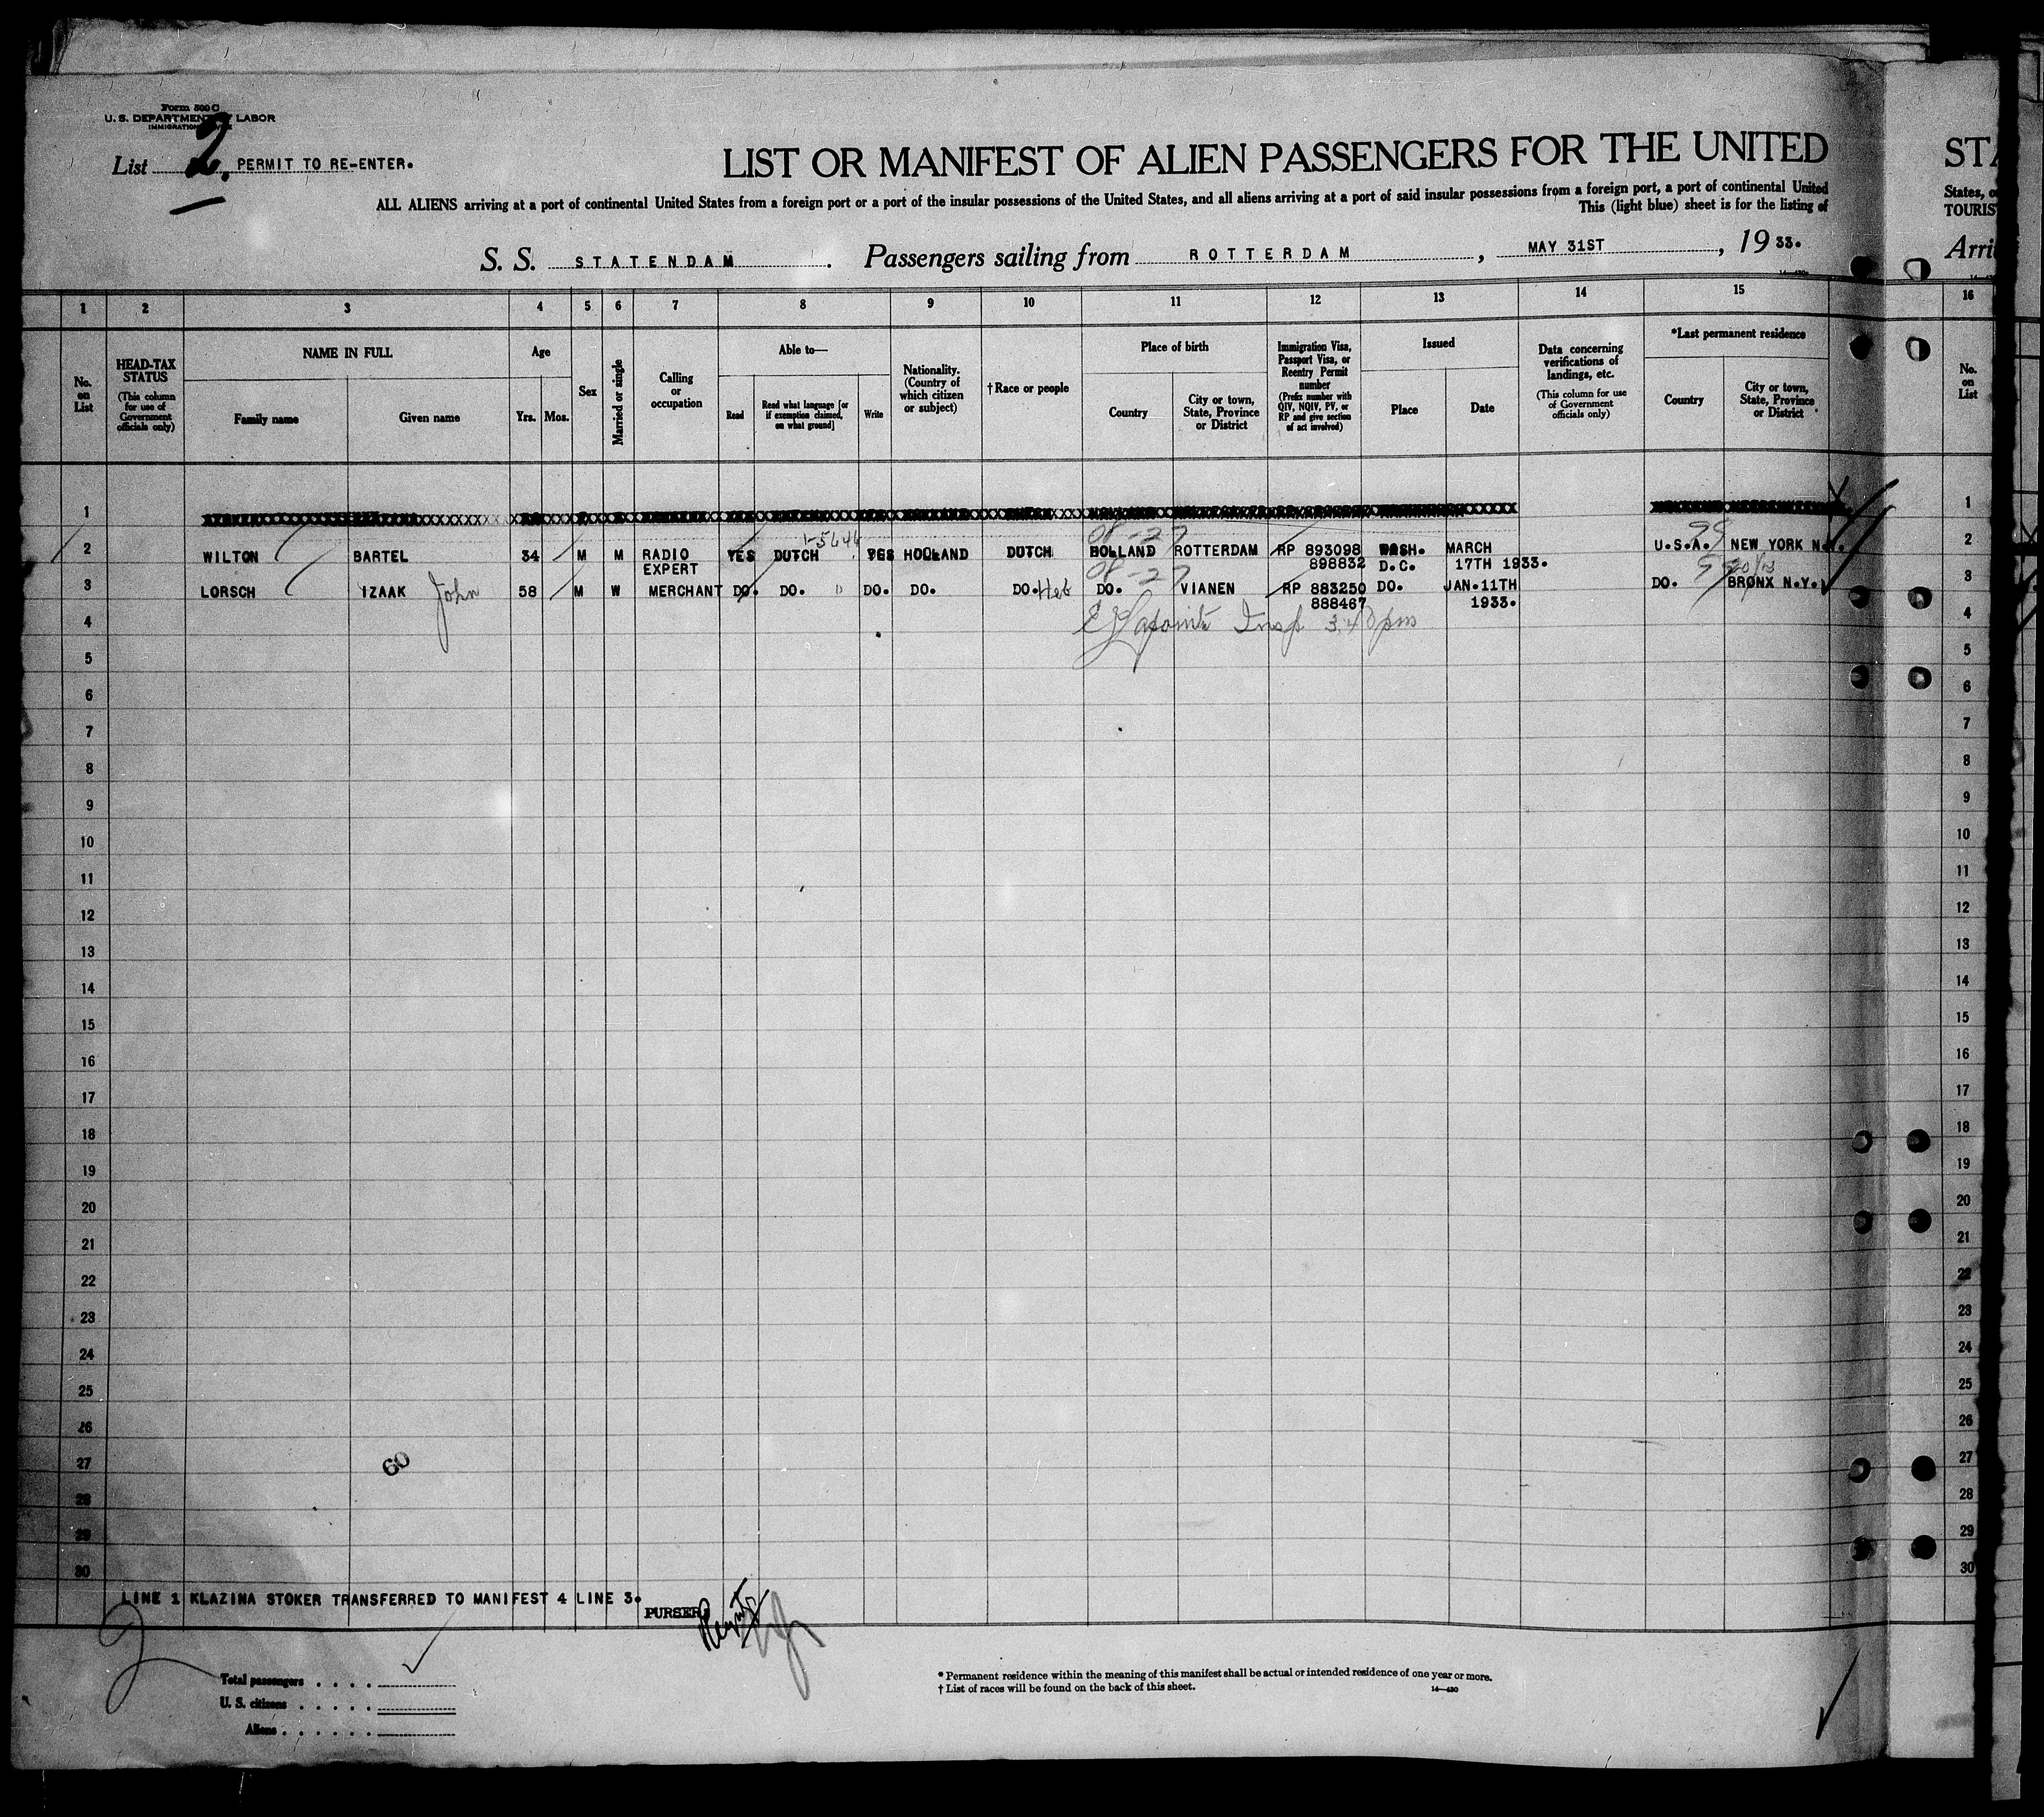 Form 500 C
U. S. DEPARTMENT OF LABOR
IMMIGRATION SERVICE
List 2. PERMIT TO RE-ENTER.
LIST OR MANIFEST OF ALIEN PASSENGERS FOR THE UNITED
STA
ALL ALIENS arriving at a port of continental United States from a foreign port or a port of the insular possessions of the United States, and all aliens arriving at a port of said insular possessions from a foreign port, a port of continental United
States, o
This (light blue) sheet is for the listing of
TOURIS
S. S. STATENDAM. Passengers sailing from ROTTERDAM, MAY 31ST, 1933.
Arri
1 2 3 4 5 6 7 8 9 10 11 12 13 14 15 16
No. on List
HEAD-TAX STATUS (This column for use of Government officials only)
NAME IN FULL
Family name
Given name
Age
Yrs.
Mos.
Sex
Married or single
Calling or occupation
Able to—
Read
Read what language [or if exemption claimed, on what ground]
Write
Nationality. (Country of which citizen or subject)
†Race or people
Place of birth
Country
City or town, State, Province or District
Immigration Visa, Passport Visa, or Reentry Permit number (Prefix number with QIV, NQIV, PV, or RP and give section of act involved)
Issued
Place
Date
Data concerning verifications of landings, etc. (This column for use of Government officials only)
*Last permanent residence
Country
City or town, State, Province or District
No. on List
1 1
08-27
1-5646
2 WILTON BARTEL 34 M M RADIO YES DUTCH YES HOLLAND DUTCH HOLLAND ROTTERDAM RP 893098 WASH. MARCH U.S.A. NEW YORK N.Y. 2
EXPERT 898832 D.C. 17TH 1933.
08-27
3 LORSCH IZAAK John 58 M W MERCHANT DO. DO. DO. DO. DO. Heb DO. VIANEN RP 883250 DO. JAN.11TH DO. BRONX N.Y. 3
888467 1933.
4 Insp 3.40 pm 4
5 5
6 6
7 7
8 8
9 9
10 10
11 11
12 12
13 13
14 14
15 15
16 16
17 17
18 18
19 19
20 20
21 21
22 22
23 23
24 24
25 25
26 26
27 60 27
28 28
29 29
30 30
LINE 1 KLAZINA STOKER TRANSFERRED TO MANIFEST 4 LINE 3.
PURSER
2
Total passengers
U. S. citizens
Aliens
* Permanent residence within the meaning of this manifest shall be actual or intended residence of one year or more.
† List of races will be found on the back of this sheet.
14—430